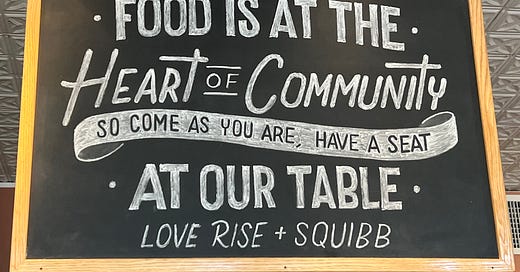 · FOOD IS AT THE ·
HEART OF COMMUNITY
SO COME AS YOU ARE, HAVE A SEAT
· AT OUR TABLE ·
LOVE RISE + SQUIBB